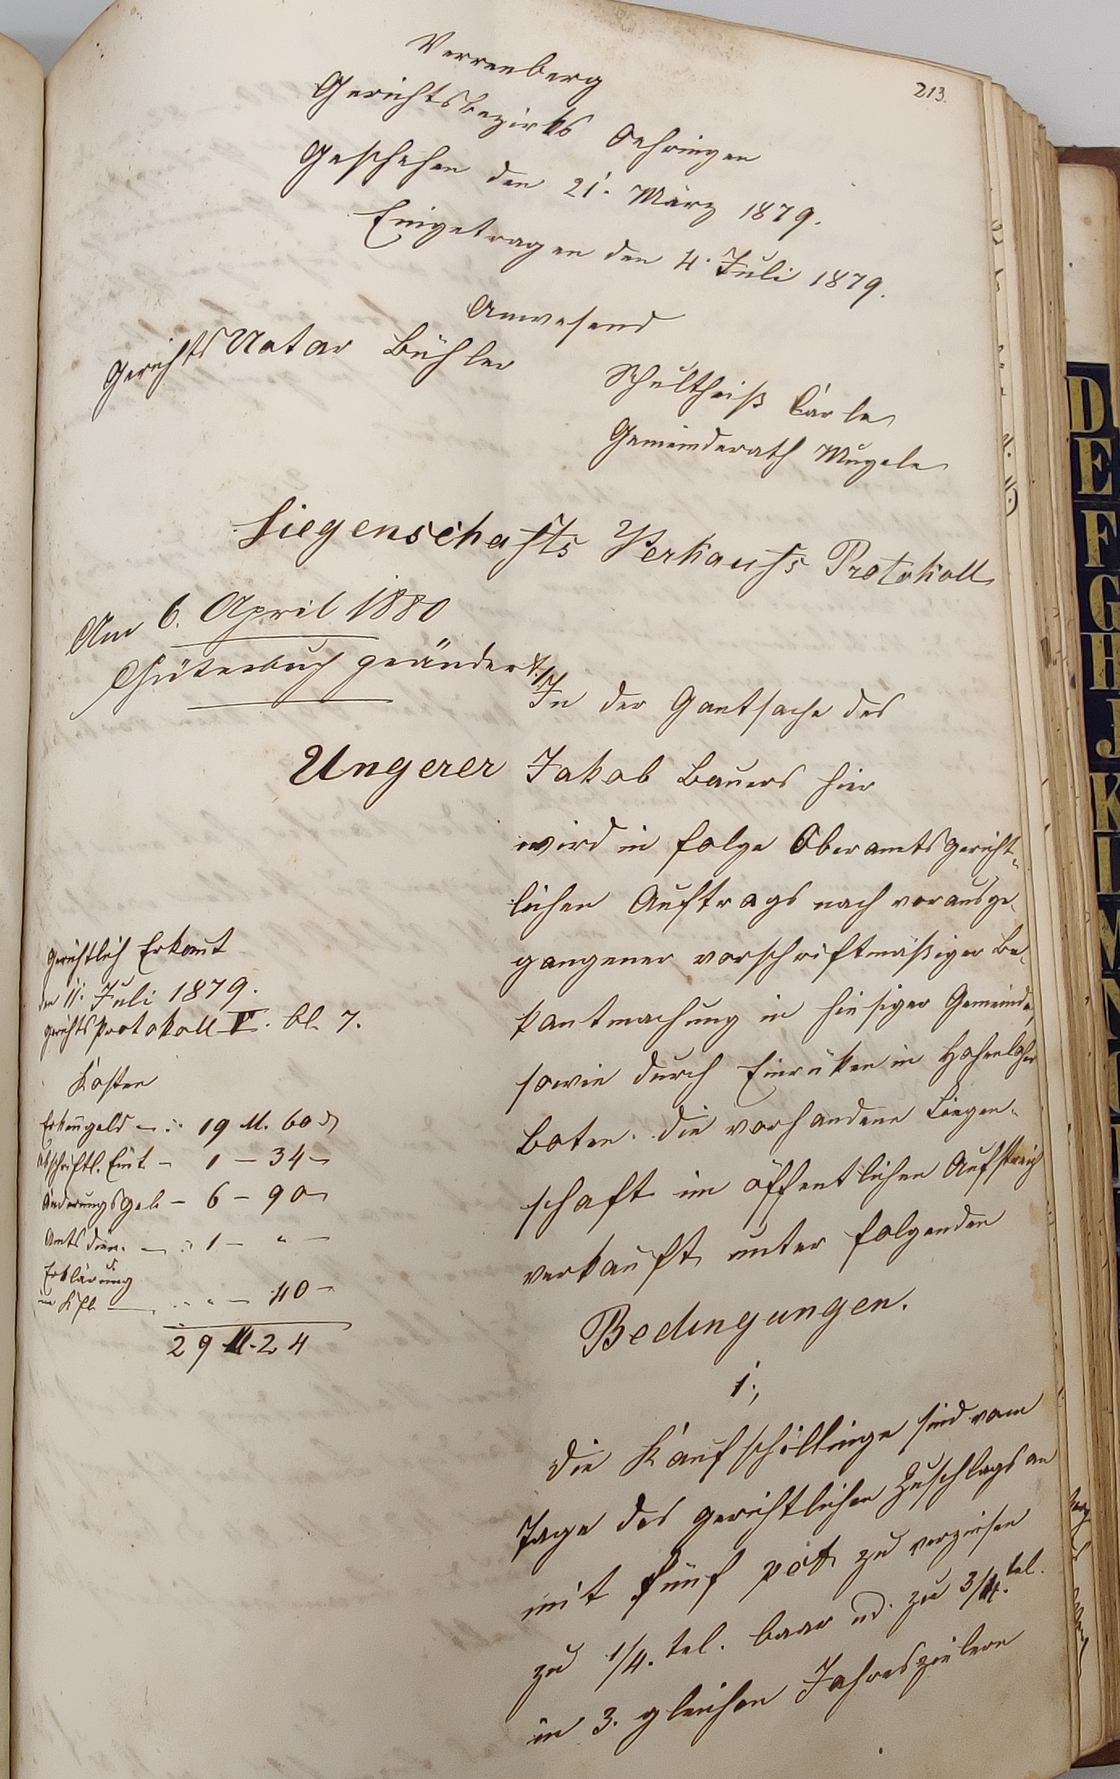 213.
Verrenberg
Gerichtsbezirks Oehringen
Geschehen den 21. März 1879.
Eingetragen den 4. Juli 1879.
Anwesend
Gerichts Notar Bühler
Schultheiß Carle
Gemeinderath Mugele
Liegenschafts Verkaufs Protokoll
Am 6. April 1880
Güterbuch geändert.
In der Gantsache des
Ungerer Jakob Bauers hier
wird in folge Oberamtsgericht-
lichen Auftrags nach vorausge-
gangener vorschriftmäßiger Be-
kantmachung in hiesiger Gemeinde,
sowie durch Einrüken in Hohenloher
Boten. die vorhandene Liegen-
schaft im öffentlichen Aufstreich
verkauft unter folgenden
Bedingungen.
1.,
Die Kaufschillinge sind vom
Tage des gerichtlichen Zuschlags an
mit fünf pct zu verzinsen
zu 1/4. tel. baar ud. zu 3/4. tel.
in 3. gleichen Jahreszielern
Gerichtlich Erkant
den 11. Juli 1879.
Gerichtsprotokoll V. bl. 7.
Kosten
Erkengeld - : 19 M. 60 ₰
Abschriftl. Eint - 1 - 34 -
Änderungsgeb - 6 - 90
Amtsdien. - : 1 - " -
Erklärung
im - " - 40 -
29 M. 24